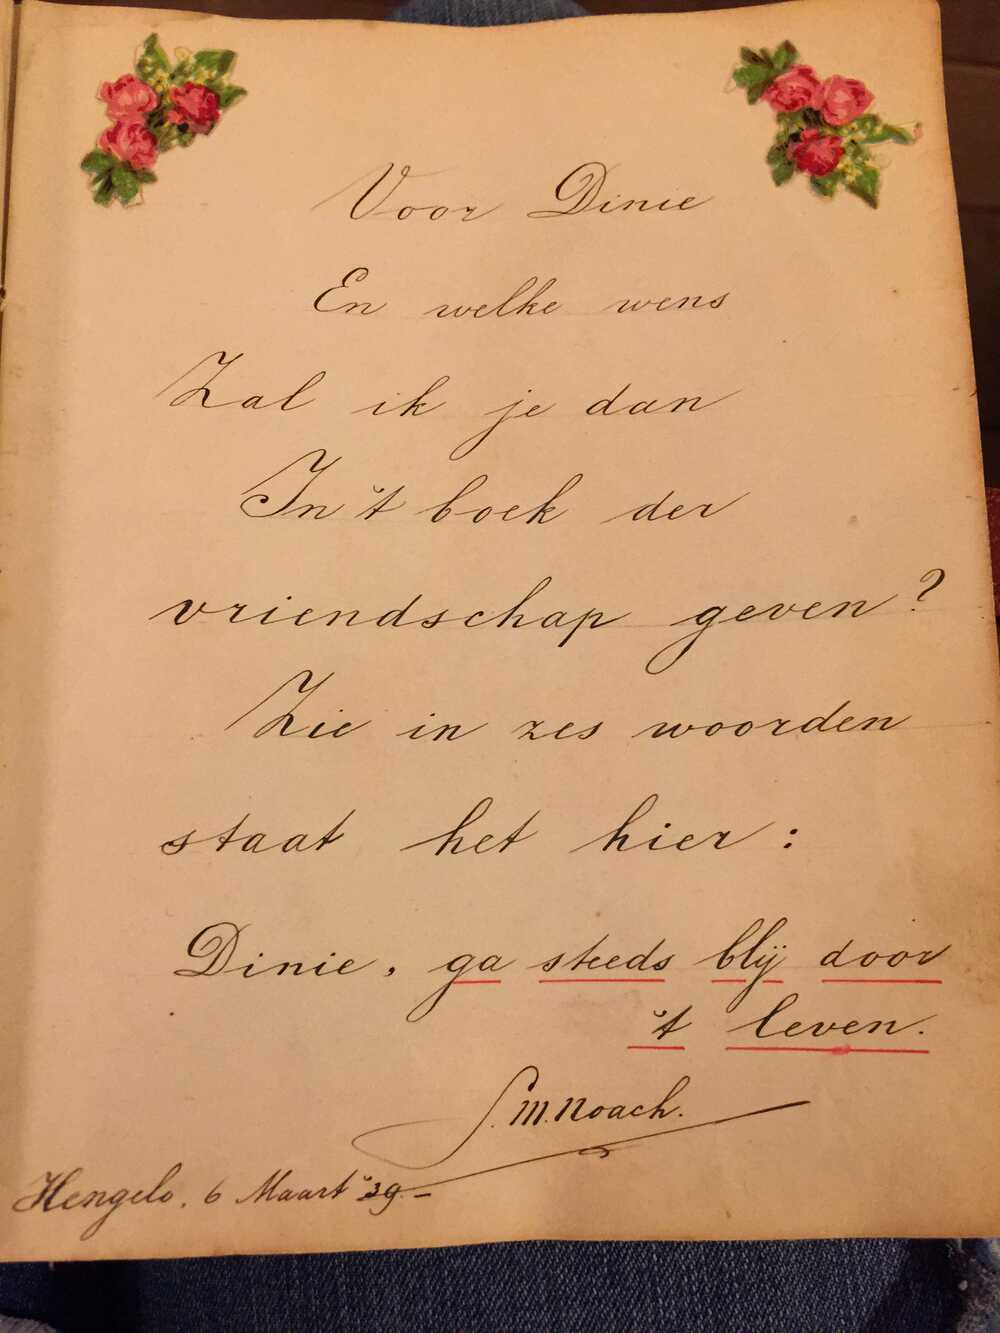 Voor Dinie
En welke wens
Zal ik je dan
In 't boek der
vriendschap geven?
Zie in zes woorden
staat het hier:
Dinie, ga steeds blij door
't leven.
S. M. Noach.
Hengelo, 6 Maart '39.-